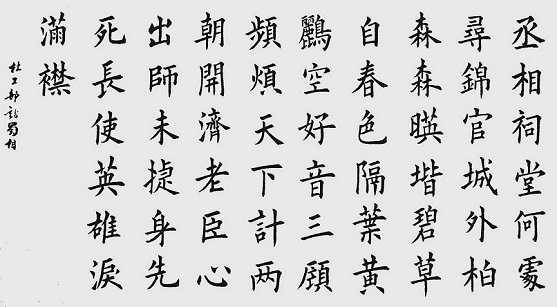 丞相祠堂何處
尋錦官城外柏
森森暎堦碧草
自春色隔葉黃
鸝空好音三顧
頻煩天下計两
朝開濟老臣心
出師未捷身先
死長使英雄淚
滿襟
杜工部詩蜀相